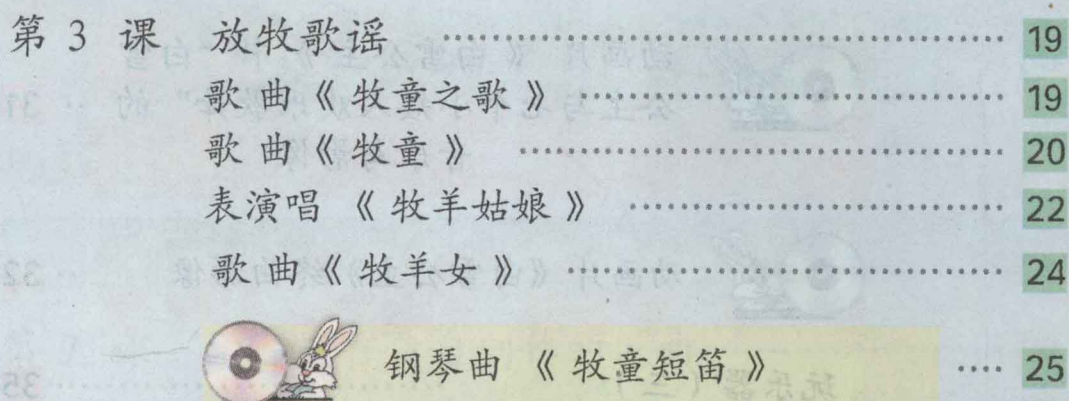 第 3 课 放牧歌谣 ………………………… 19
歌曲《牧童之歌》 ………………………… 19
歌曲《牧童》 ………………………… 20
表演唱《牧羊姑娘》 ………………………… 22
歌曲《牧羊女》 ………………………… 24
钢琴曲《牧童短笛》 …… 25